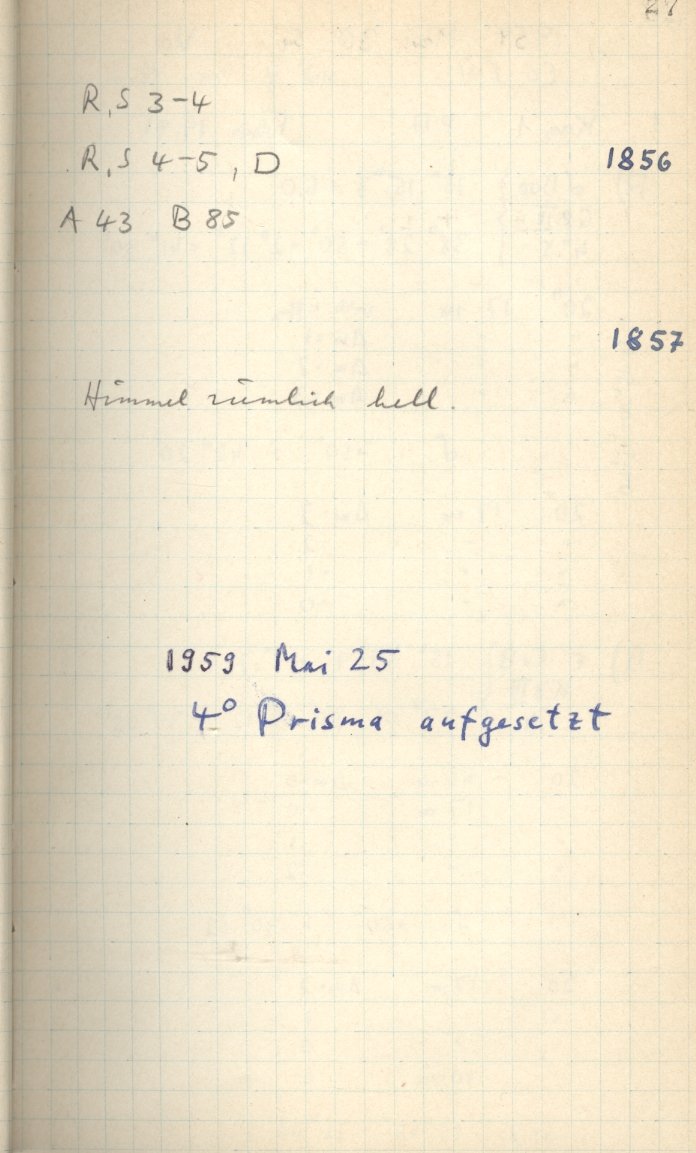 27
R,S 3-4
R,S 4-5, D 1856
A 43 B 85
1857
Himmel ziemlich hell.
1959 Mai 25
4° Prisma aufgesetzt